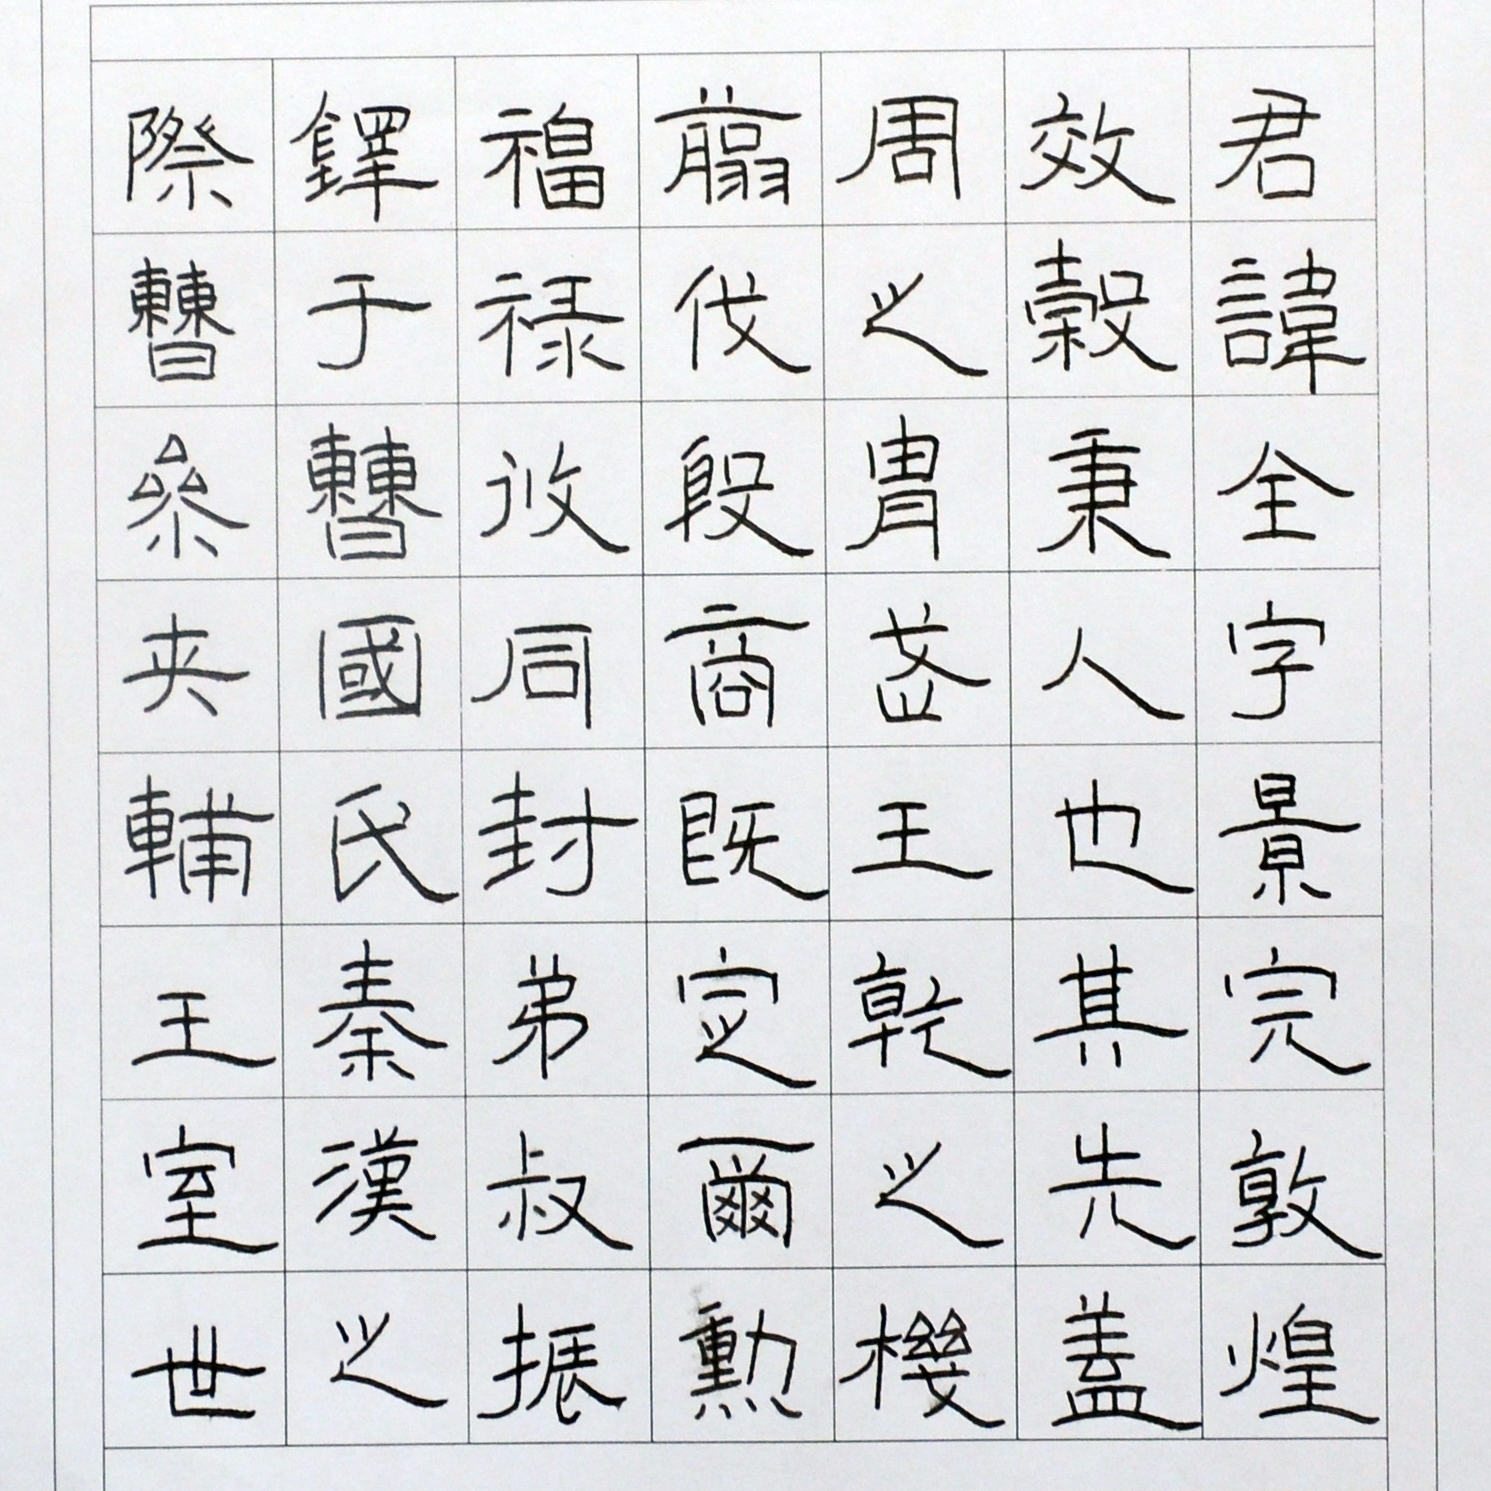 君諱全字景完敦煌
效穀秉人也其先盖
周之胄武王乾之機
翦伐殷商既定爾勲
福禄攸同封弟叔振
鐸于曹國氏秦漢之
際曹叅夹輔王室世